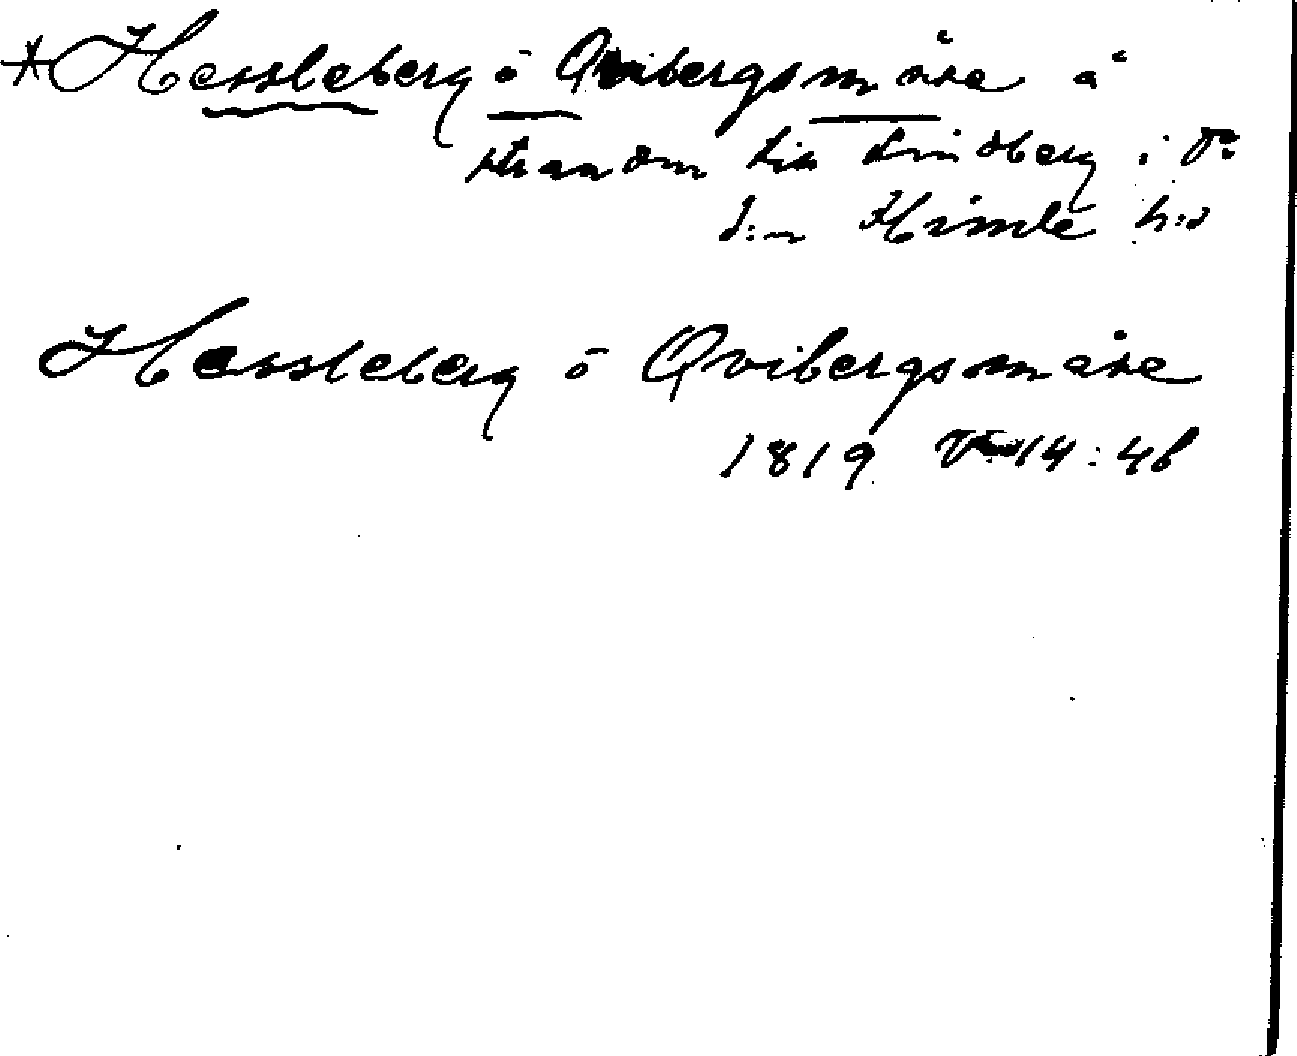 *Hessleberg ö Qvibergsmåse å
stranden till Lindberg i D:o
s:n Himle h:d
Hessleberg ö Qvibergsmåse
1819 V 14:46